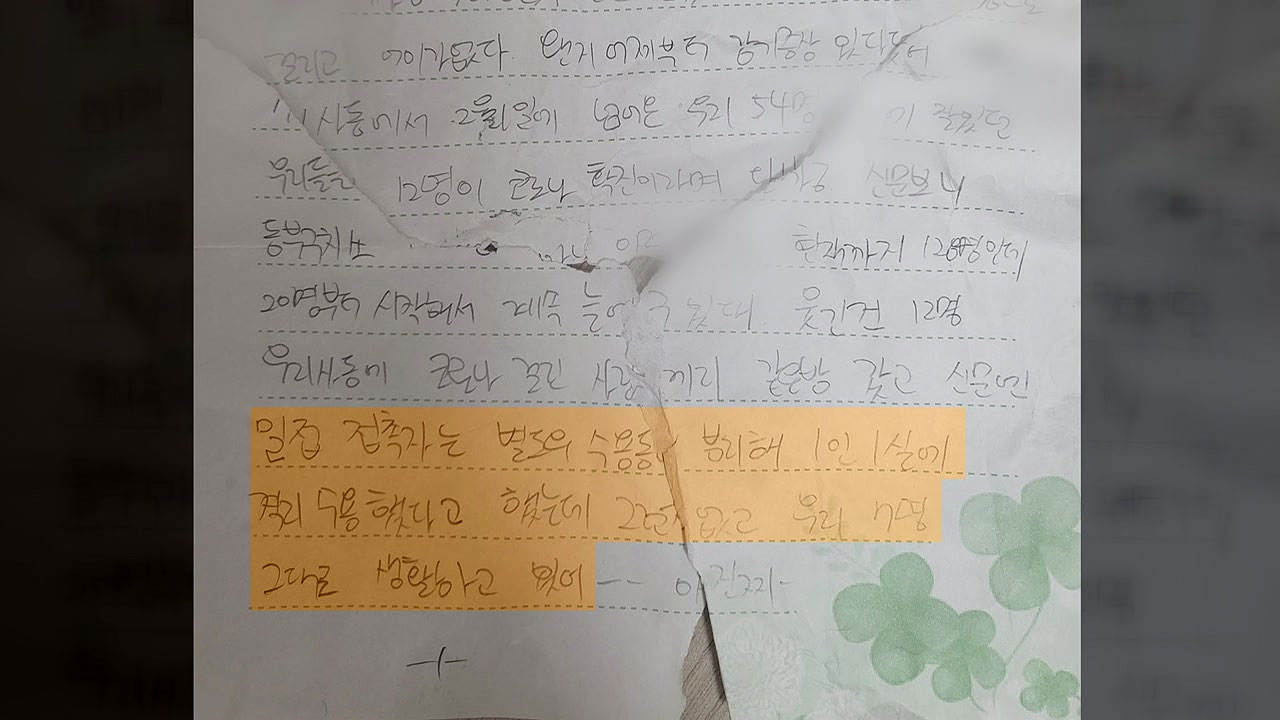 걸리고 어이가없다. 왠지 어제부터 감기증상 있다닷어
사동에서 2월1일에 넘어온 우리 54명 기 잘있던
우리들 12명이 코로나 확진이라며 신문보니
동부구치소 환자까지 128명인데
20명부터 시작해서 계속 웃긴건 12명
우리사동에 코로나 걸린 사람 끼리 같은방 갔고 신문에인
밀접 접촉자는 별도의 수용동 분리해 1인 1실에
격리 수용했다고 했는데 그런거 없고 우리 7명
그대로 생활하고 있어 -- 아 진짜-